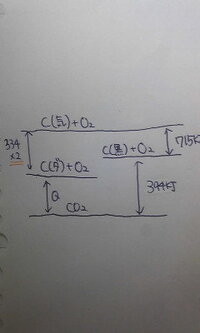 C(気)+O₂
334
×2
C(黒)+O₂
715k
C(ダ)+O₂
Q
394kJ
CO₂